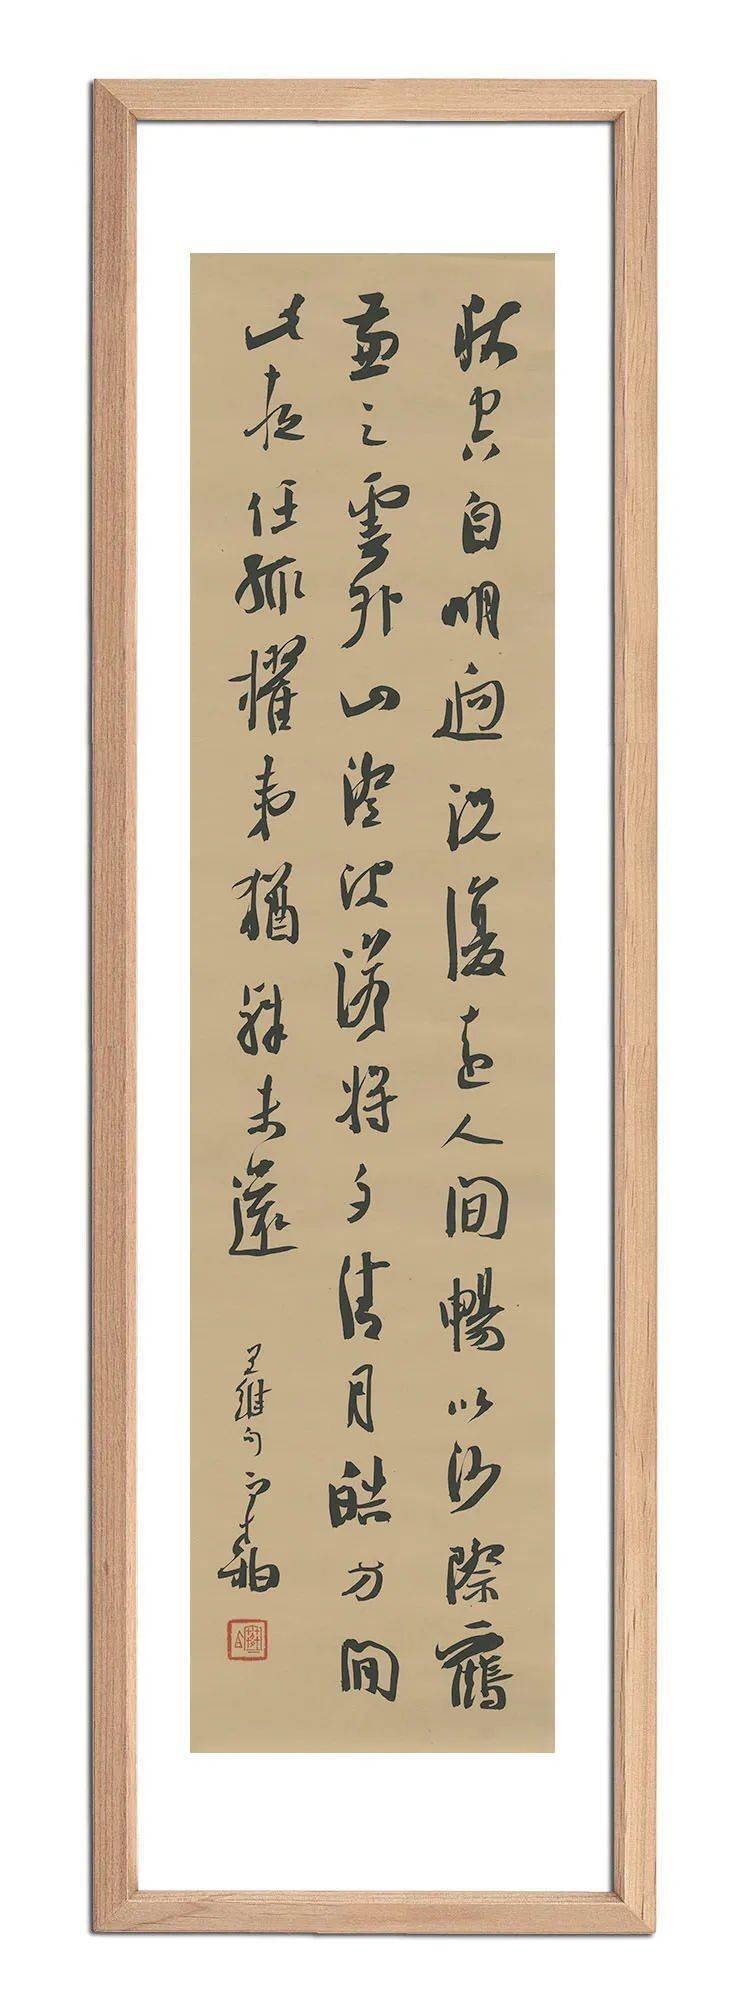 秋空自明迥況復遠人間暢以沙際鶴
兼之雲外山澄波澹將夕清月皓方閒
此夜任孤櫂夷猶殊未還
王維句